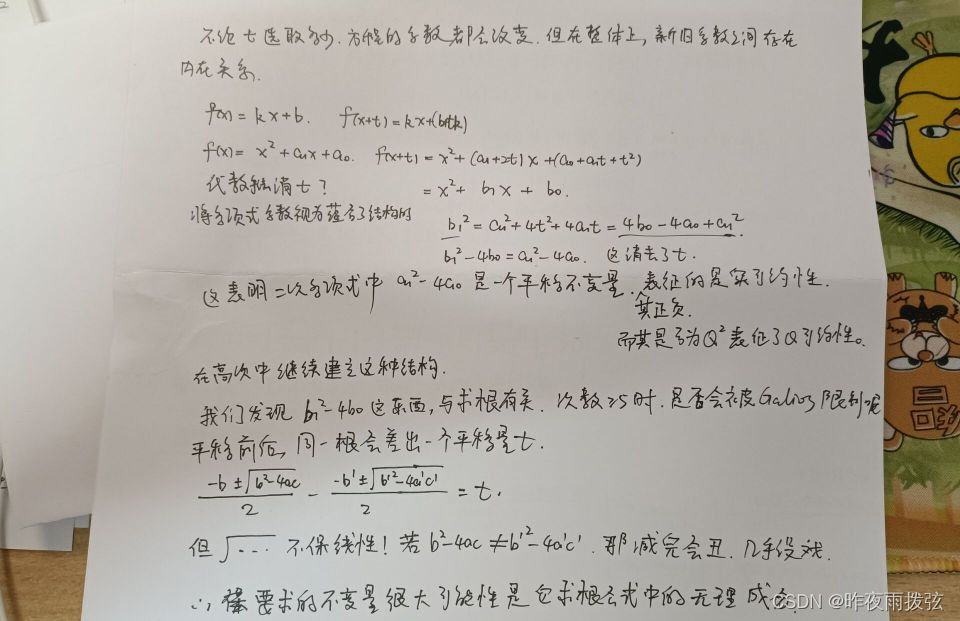 不论t选取多少,方程的系数都会改变.但在整体上,新旧系数之间存在
内在关系.
f(x)=kx+b. f(x+t)=kx+(b+tk)
f(x)=x²+a₁x+a₀. f(x+t)=x²+(a₁+2t)x+(a₀+a₁t+t²)
代数组消t? =x²+b₁x+b₀.
将多项式系数视为蕴含了结构的
b₁²=a₁²+4t²+4a₁t=4b₀-4a₀+a₁².
b₁²-4b₀=a₁²-4a₀. 这消去了t.
这表明二次多项式中 a₁²-4a₀ 是一个平移不变量.表征的是实可约性.
其正负.
而其是否为Q²表征了Q可约性。
在高次中继续建立这种结构.
我们发现 b₁²-4b₀ 这东西,与求根有关.次数≥5时,是否会被Galios限制呢
平移前后,同一根会差出一个平移量t.
(-b±√(b²-4ac))/2 - (-b'±√(b'²-4a'c'))/2 = t.
但√… 不保线性!若b²-4ac≠b'²-4a'c'.那减完会丑.几乎没戏.
∴ 要求的不变量很大可能性是它求根公式中的无理成分.
CSDN @昨夜雨拨弦